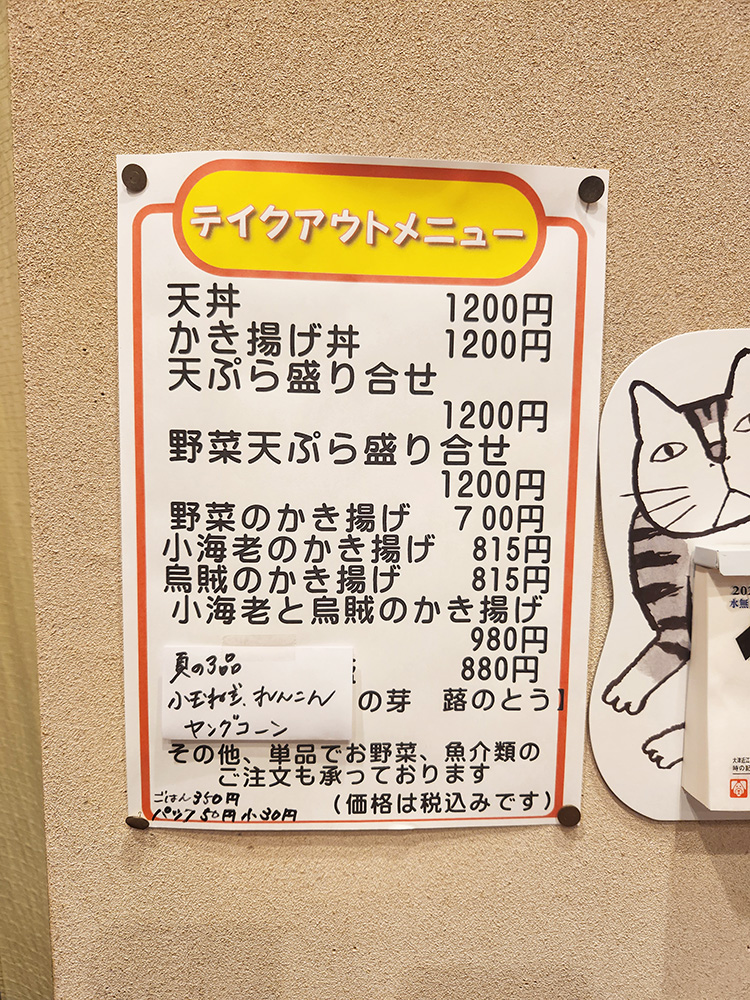 テイクアウトメニュー
天丼 1200円
かき揚げ丼 1200円
天ぷら盛り合せ
1200円
野菜天ぷら盛り合せ
1200円
野菜のかき揚げ 700円
小海老のかき揚げ 815円
烏賊のかき揚げ 815円
小海老と烏賊のかき揚げ
980円
880円
夏の3品
小玉ねぎ、れんこん
ヤングコーン
の芽 蕗のとう】
その他、単品でお野菜、魚介類の
ご注文も承っております
(価格は税込みです)
ごはん350円
パック50円小30円
水無
大津近江
時の記